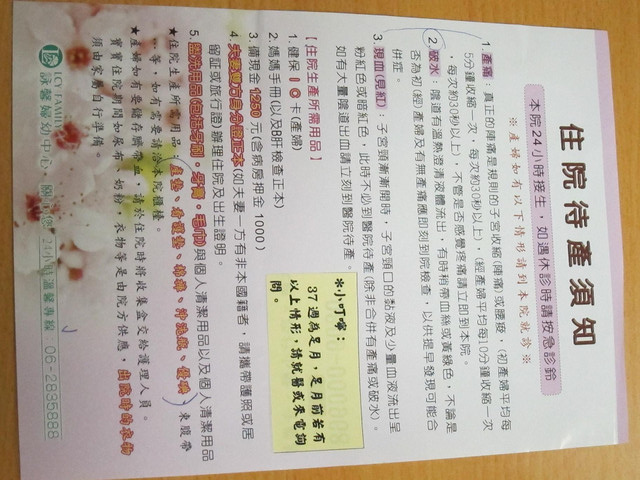 住院待產須知
本院24小時接生，如遇休診時請按急診鈴
※產婦如有以下情形請到本院就診※
1.產痛：真正的陣痛是規則的子宮收縮(陣痛)或腰接，(初產婦平均每
5分鐘收縮一次，每次約30秒以上)，(經產婦平均每10分鐘收縮一次
，每次約30秒以上)，不管是否感覺疼痛請立即到本院。
2.破水：陰道有溫熱澄清液體流出，有時稍帶血絲或黃綠色，不論是
否為初(經)產婦及有無產痛應即刻到院檢查，以供提早發現可能合
併症。
3.現血(見紅)：子宮頸漸漸開時，子宮頸口的黏液及少量血液流出呈
粉紅色或暗紅色，此時不必到醫院待產(除非合併有產痛或破水。
如有大量陰道出血請立刻到醫院待產。
※小叮嚀：
37週為足月，足月前若有
以上情形，請就醫或來電詢
問。
【住院生產所需用品】
1.健保IC卡(產婦)
2.媽媽手冊(以及B肝檢查正本)
3.備現金1250元(含病房押金1000)
4.夫妻雙方身分證正本(如夫妻一方有非本國籍者，請攜帶護照或居
留証或旅行證)辦理住院及出生證明。
5.盥洗用品(包括牙刷、牙膏、毛巾)與個人清潔用品以及個人清潔用品
★住院生產所需用品(產墊、看護墊、棉棒、沖洗瓶、發票)束腹帶
…等，如有需要請洽本院櫃檯。
★產婦如有要儲存臍帶血，請於住院時將收集盒交給護理人員。
寶寶住院期間如尿布、奶粉、衣物等是由院方供應，出院時的衣物
須由家屬自行準備
ICY FAMILY
詠馨婦幼中心 關心您 24小時溫馨專線：06-2835888